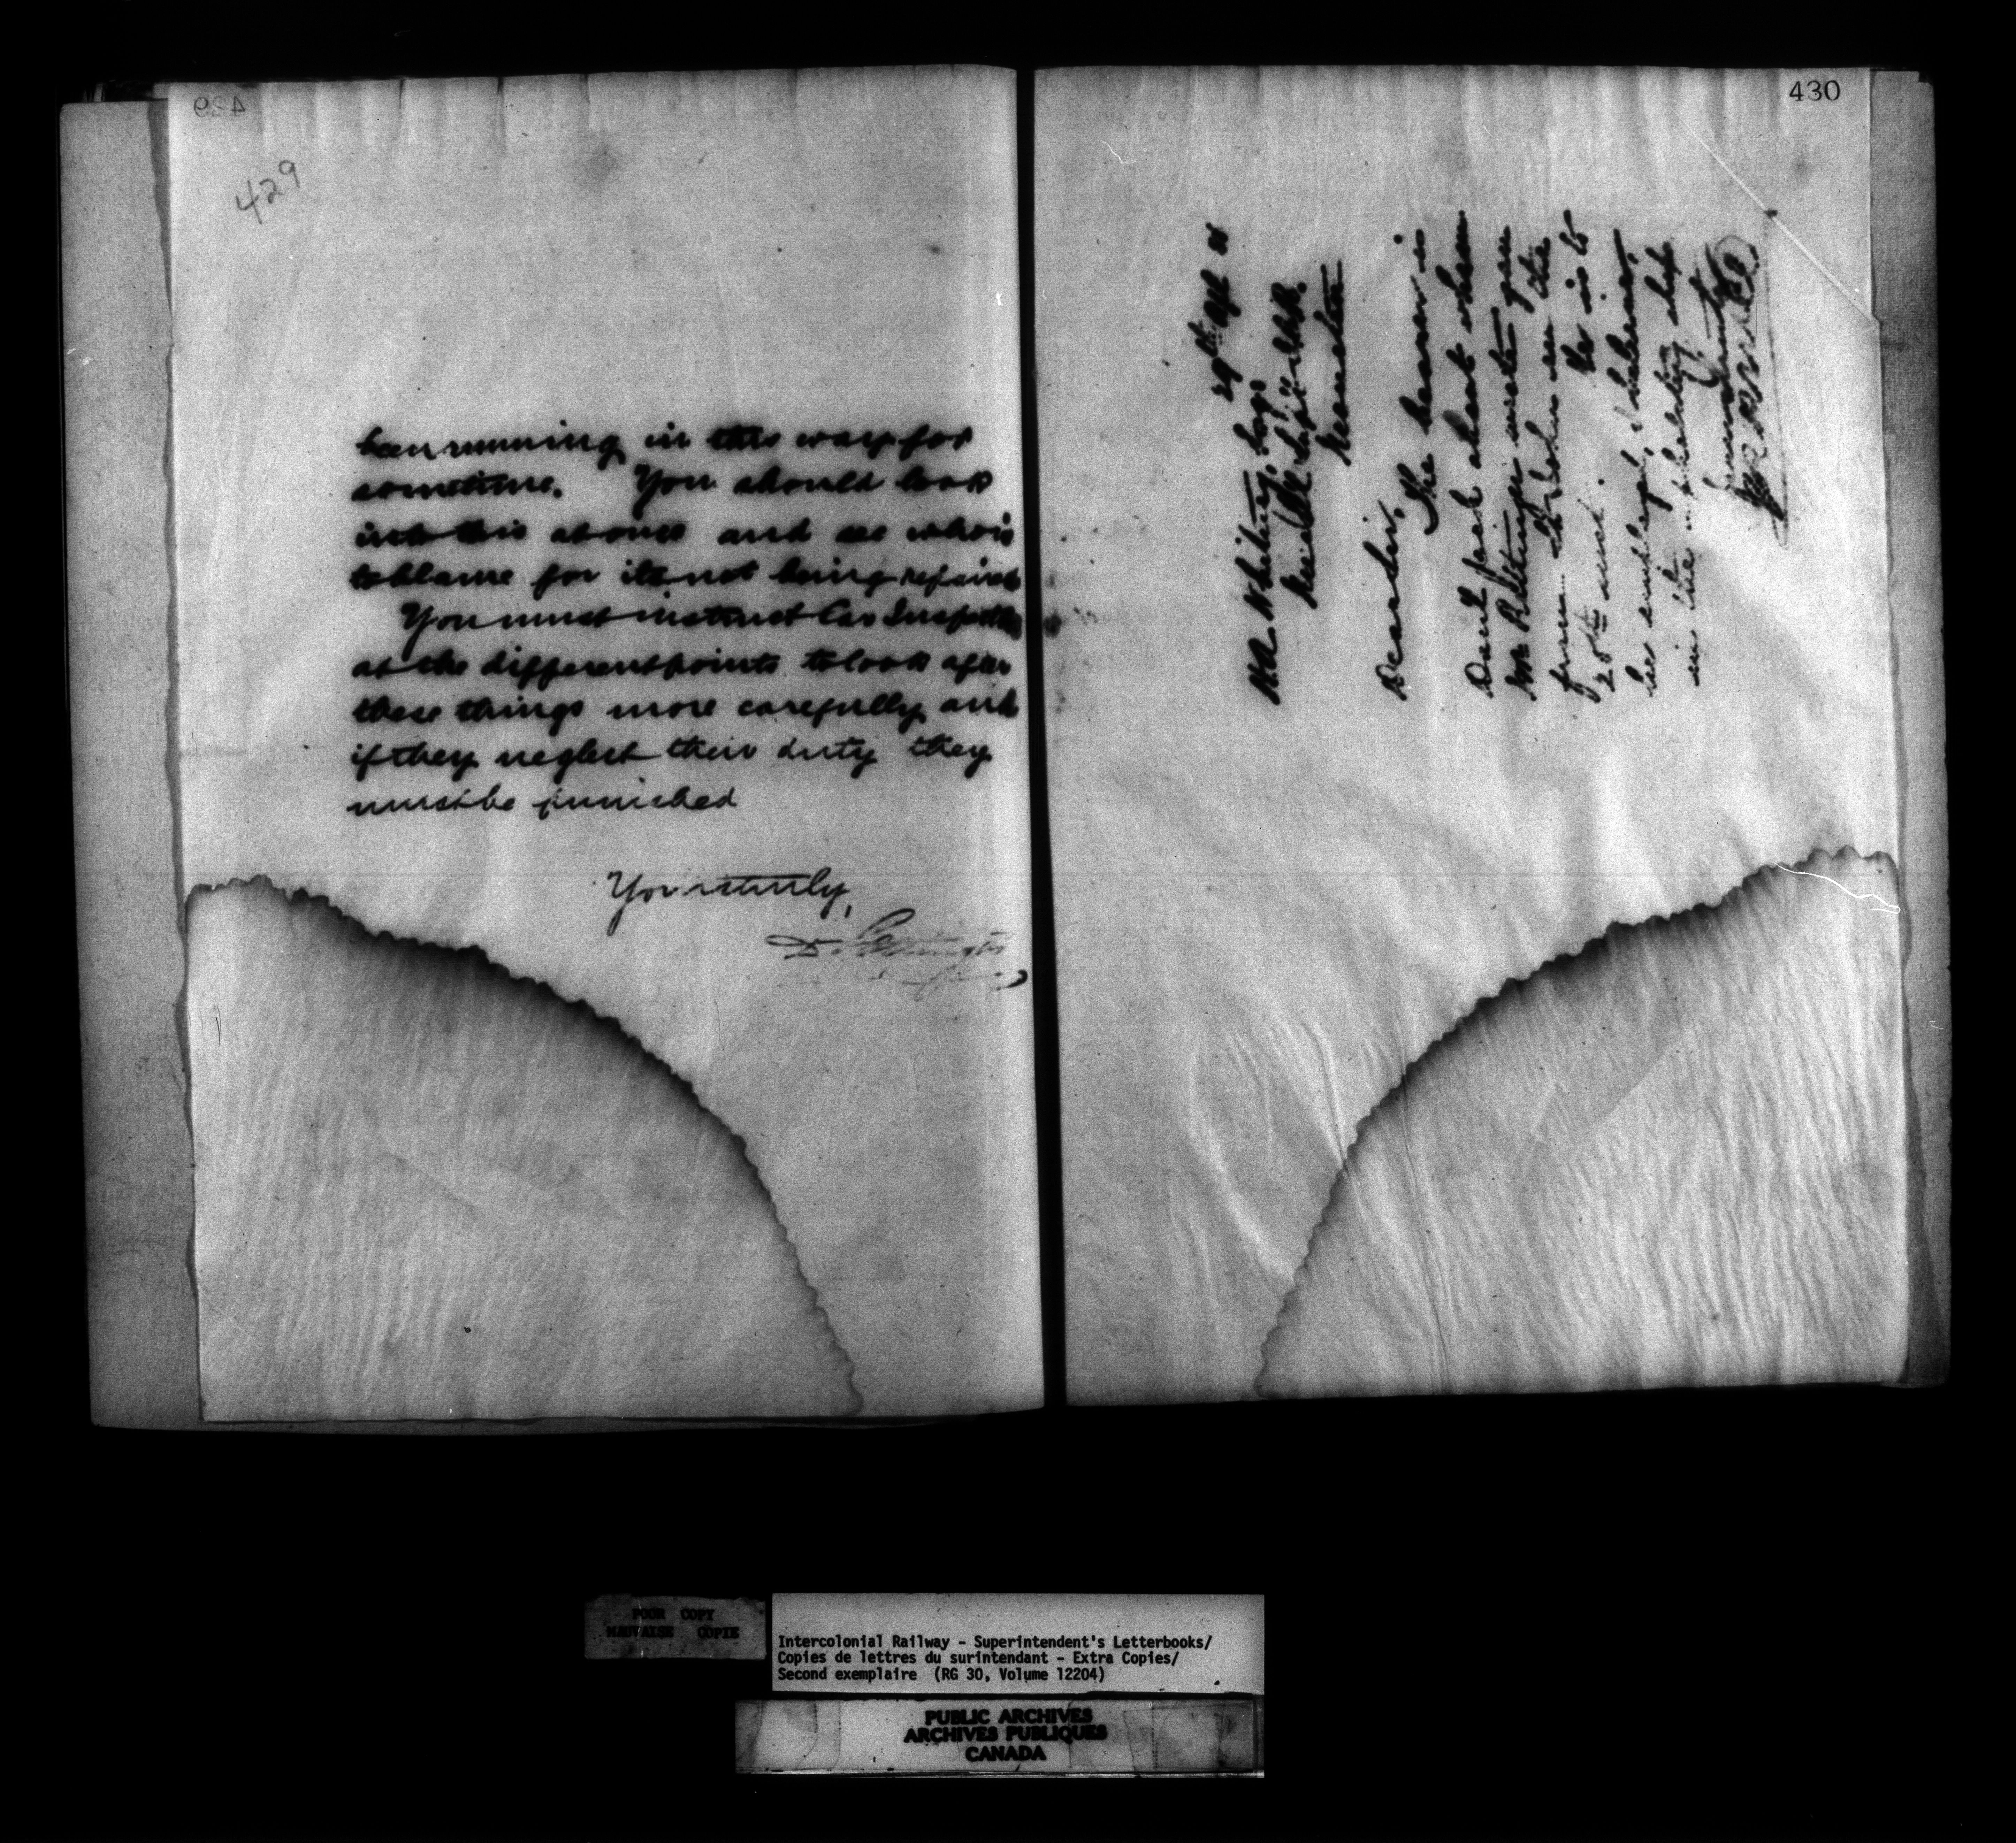 429
429
been running in this way for
sometime. You should look
into this at once and see who is
to blame for its not being repaired
You must instruct Car Inspectors
at the different points to look after
these things more carefully and
if they neglect their duty they
must be punished
Yours truly,
D. Pottinger
430
29th Apl
H A Whitney, Esq
Mech
Moncton
Dear Sir,
The bearer is
about whom
Mr Pottinger wrote you
from St John on the
20th inst. He is to
be employed, I believe,
in the
Yours truly
POOR COPY
MAUVAISE COPIE
Intercolonial Railway - Superintendent's Letterbooks/
Copies de lettres du surintendant - Extra Copies/
Second exemplaire (RG 30, Volume 12204)
PUBLIC ARCHIVES
ARCHIVES PUBLIQUES
CANADA